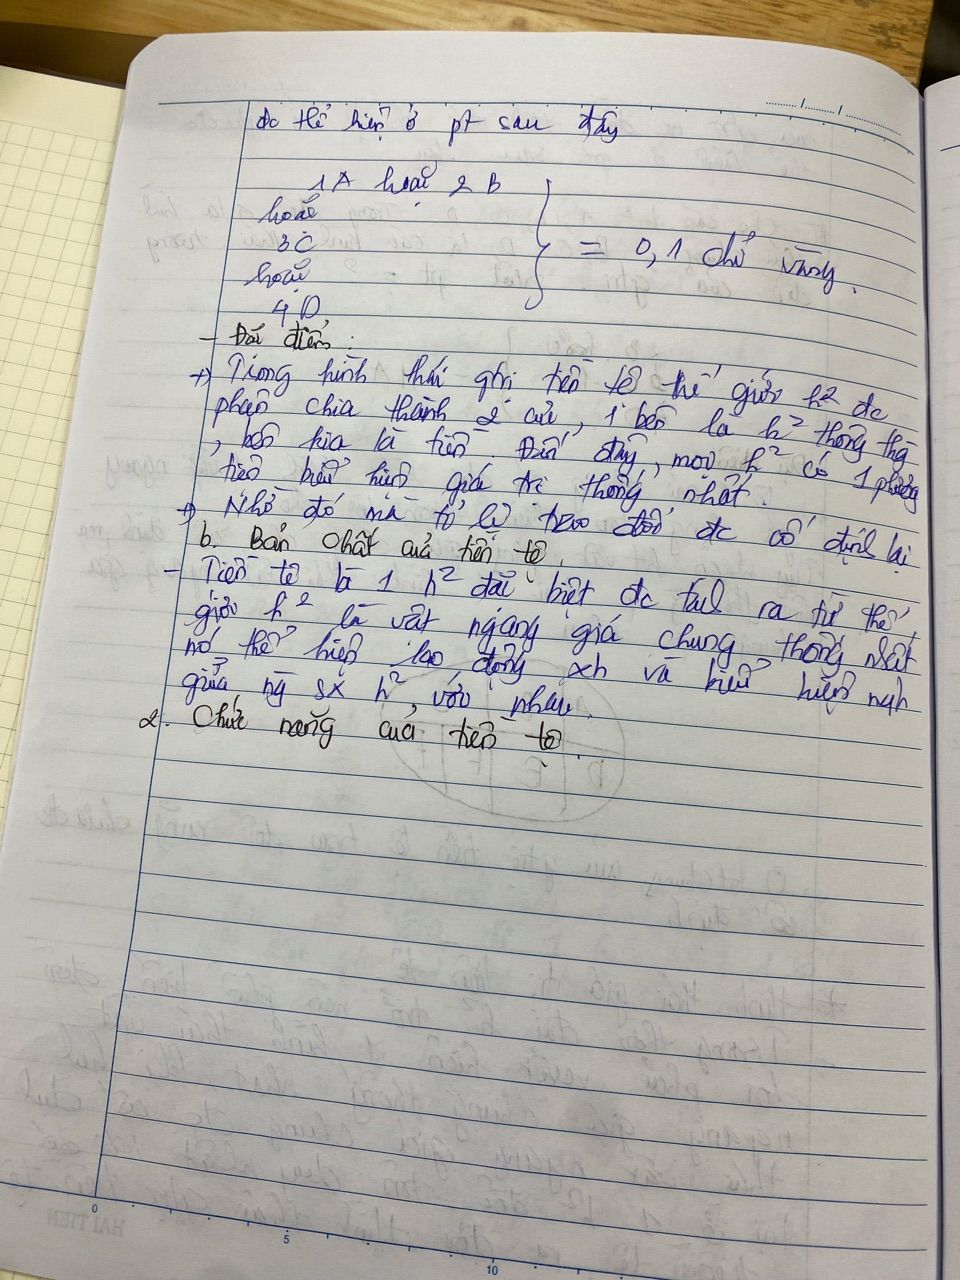 đc thể hiện ở pt sau đây
1A hoặc 2 B
hoặc
3C
hoặc
4D
= 0,1 chỉ vàng.
- Đặc điểm:
+) Trong hình thái gtrị tiền tệ thế giới h² đc
phân chia thành 2 cực, 1 bên là h² thông thg
, bên kia là tiền. Đến đây, mọi h² có 1 phương
tiện biểu hiện giá trị thống nhất.
+) Nhờ đó mà tỷ lệ trao đổi đc cố định lại
b. Bản chất của tiền tệ.
- Tiền tệ là 1 h² đặc biệt đc tách ra từ thế
giới h² là vật ngang giá chung thống nhất
nó thể hiện lao động xh và biểu hiện qh
giữa ng sx h², với nhau.
2. Chức năng của tiền tệ.
HẢI TIẾN
0
5
10